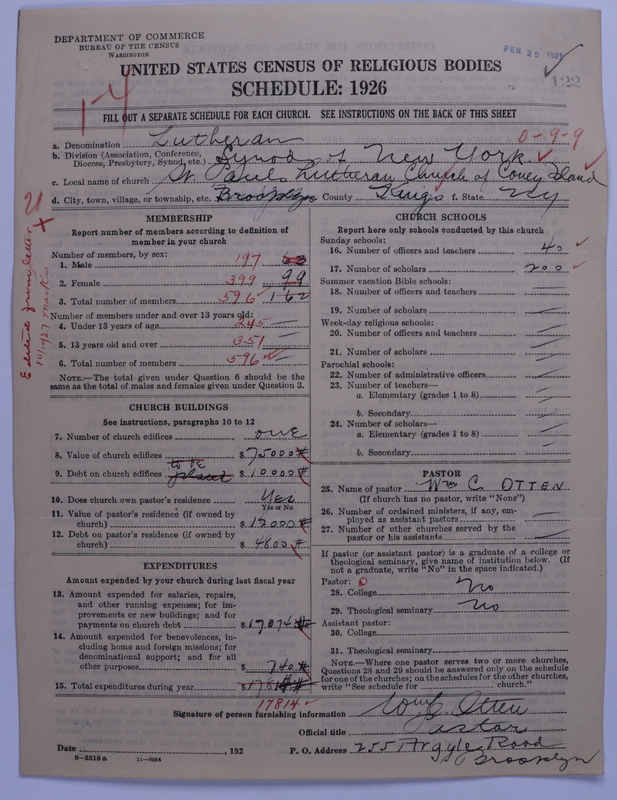 DEPARTMENT OF COMMERCE
BUREAU OF THE CENSUS
WASHINGTON
FEB 25 1927
UNITED STATES CENSUS OF RELIGIOUS BODIES
122
SCHEDULE: 1926
1-4
FILL OUT A SEPARATE SCHEDULE FOR EACH CHURCH. SEE INSTRUCTIONS ON THE BACK OF THIS SHEET
0-9-9
a. Denomination Lutheran
b. Division (Association, Conference, Diocese, Presbytery, Synod, etc.) Synod of New York
c. Local name of church St. Pauls Lutheran Church of Coney Island
d. City, town, village, or township, etc. Brooklyn County Kings f. State NY
MEMBERSHIP
Report number of members according to definition of
member in your church
Number of members, by sex:
1. Male 197
2. Female 399 99
3. Total number of members 596 162
Number of members under and over 13 years old:
4. Under 13 years of age 245
5. 13 years old and over 351
6. Total number of members 596
NOTE.—The total given under Question 6 should be the
same as the total of males and females given under Question 3.
CHURCH BUILDINGS
See instructions, paragraphs 10 to 12
7. Number of church edifices one
8. Value of church edifices $75000
to be placed
9. Debt on church edifices $10000
10. Does church own pastor's residence Yes
Yes or No
11. Value of pastor's residence (if owned by
church) $12000
12. Debt on pastor's residence (if owned by
church) $4800
EXPENDITURES
Amount expended by your church during last fiscal year
13. Amount expended for salaries, repairs,
and other running expenses; for im-
provements or new buildings; and for
payments on church debt $17074
14. Amount expended for benevolences, in-
cluding home and foreign missions; for
denominational support; and for all
other purposes $740
15. Total expenditures during year $17814
17814
CHURCH SCHOOLS
Report here only schools conducted by this church
Sunday schools:
16. Number of officers and teachers 40
17. Number of scholars 200
Summer vacation Bible schools:
18. Number of officers and teachers
19. Number of scholars
Week-day religious schools:
20. Number of officers and teachers
21. Number of scholars
Parochial schools:
22. Number of administrative officers
23. Number of teachers—
a. Elementary (grades 1 to 8)
b. Secondary
24. Number of scholars—
a. Elementary (grades 1 to 8)
b. Secondary
PASTOR
25. Name of pastor Wm C. OTTEN
(If church has no pastor, write "None")
26. Number of ordained ministers, if any, em-
ployed as assistant pastors
27. Number of other churches served by the
pastor or his assistants
If pastor (or assistant pastor) is a graduate of a college or
theological seminary, give name of institution below. (If
not a graduate, write "No" in the space indicated.)
Pastor:
28. College No
29. Theological seminary No
Assistant pastor:
30. College
31. Theological seminary
NOTE.—Where one pastor serves two or more churches,
Questions 28 and 29 should be answered only on the schedule
for one of the churches; on the schedules for the other churches,
write "See schedule for church."
Signature of person furnishing information Wm C. Otten
Official title Pastor
Date , 192
P. O. Address 255 Argyle Road
Brooklyn
8-5518 a 11-9054